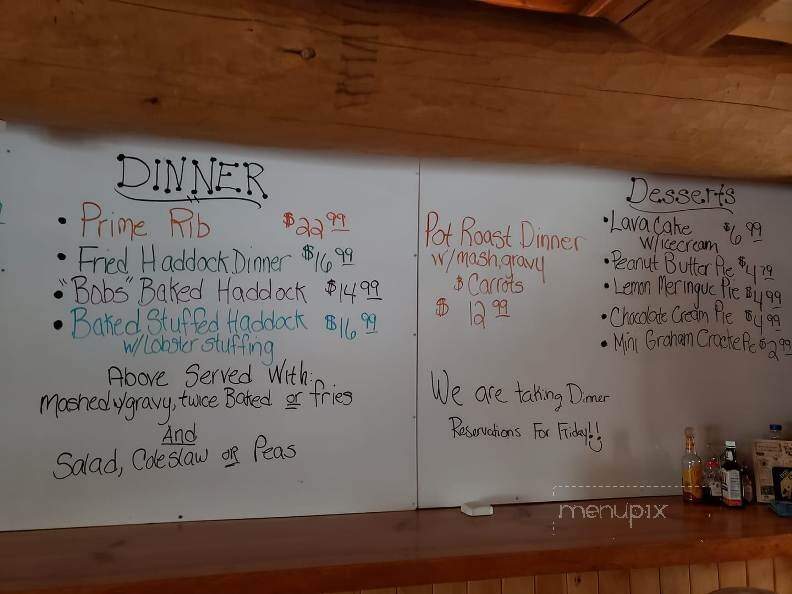 DINNER
• Prime Rib $22.99
• Fried Haddock Dinner $16.99
• "Bobs" Baked Haddock $14.99
• Baked Stuffed Haddock $16.99
w/Lobster stuffing
Above Served With:
Mashed w/gravy, twice Baked or fries
And
Salad, Coleslaw or Peas
Pot Roast Dinner
w/mash, gravy
& Carrots
$12.99
We are taking Dinner
Reservations For Friday!!
Desserts
• Lava Cake $6.99
w/icecream
• Peanut Butter Pie $4.79
• Lemon Meringue Pie $4.99
• Chocolate Cream Pie $4.99
• Mini Graham Cracke Pie $2.99
menupix